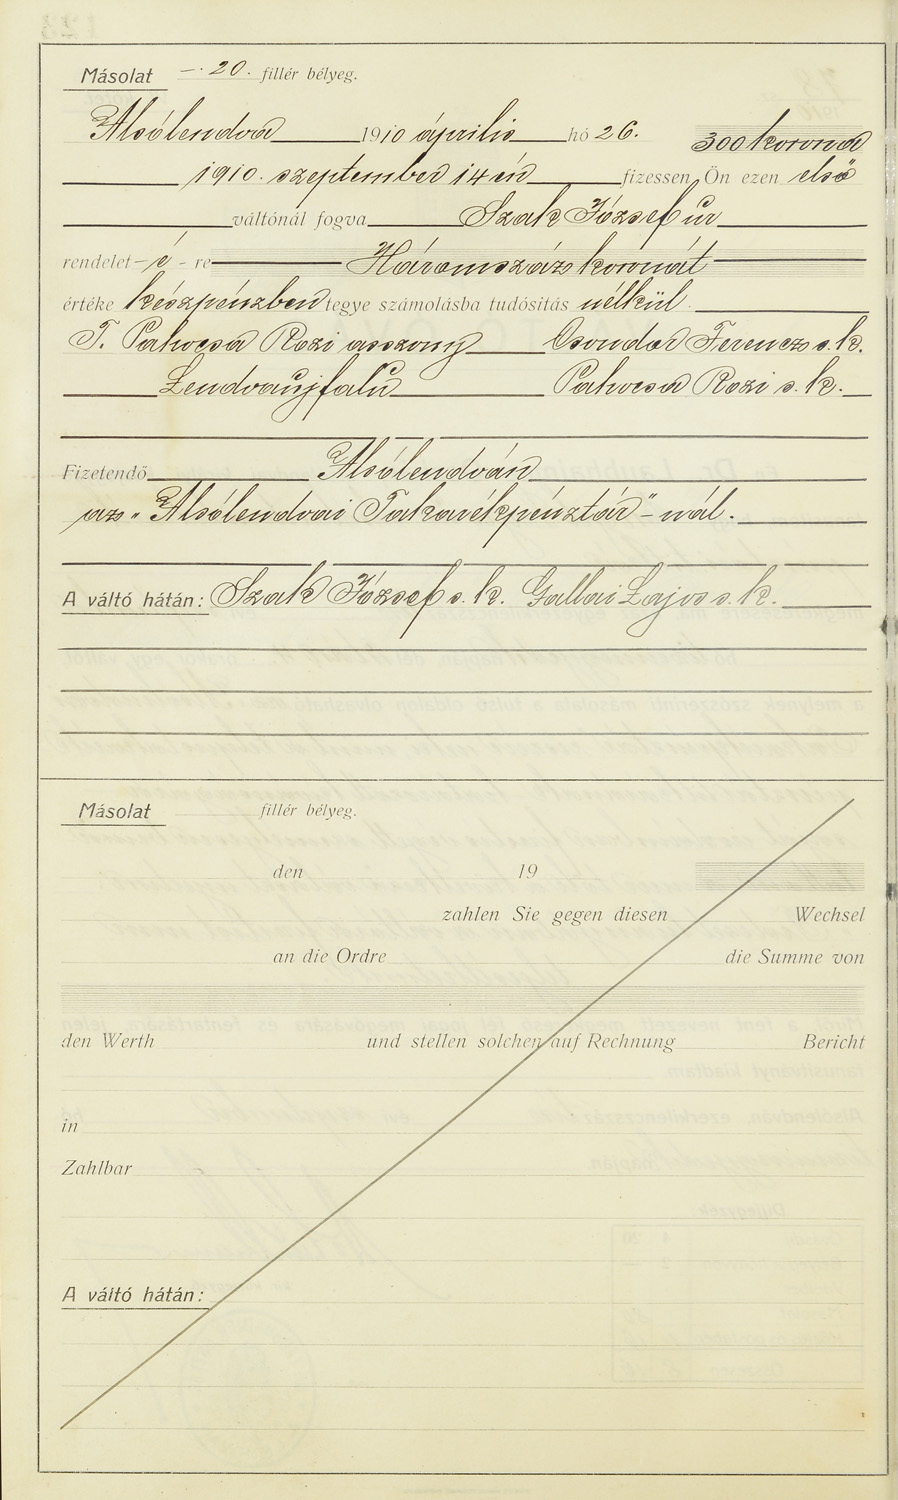 Másolat —. 20. fillér bélyeg.
Alsólendva 1910 április hó 26. 300 korona
1910. szeptember 14 én fizessen Ön ezen első
váltónál fogva Szak József úr
rendelet-é-re Háromszáz koronát
értéke készpénzben tegye számolásba tudósítás nélkül.
T. Pakocsa Rozi asszony Csondor Ferencz s. k.
Lendvaujfalu Pakocsa Rozi s. k.
Fizetendő Alsólendván
az „Alsólendvai Takarékpénztár"-nál.
A váltó hátán: Szak József s. k. Gallai Lajos s. k.
Másolat fillér bélyeg.
den 19
zahlen Sie gegen diesen Wechsel
an die Ordre die Summe von
den Werth und stellen solchen auf Rechnung Bericht
in
Zahlbar
A váltó hátán: